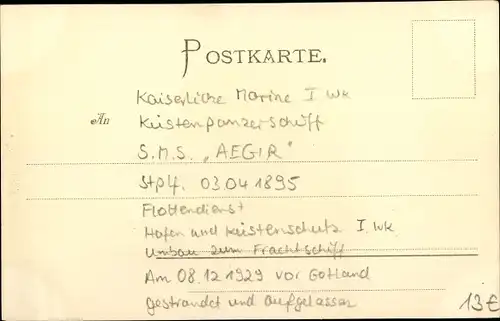 POSTKARTE.
Kaiserliche Marine I WK
An
Küstenpanzerschiff
S.M.S. „AEGIR"
Stplf. 03.04 1895
Flottendienst
Hafen und Küstenschutz I. WK
Umbau zum Frachtschiff
Am 08.12 1929 vor Gotland
gestrandet und aufgelassen
13€